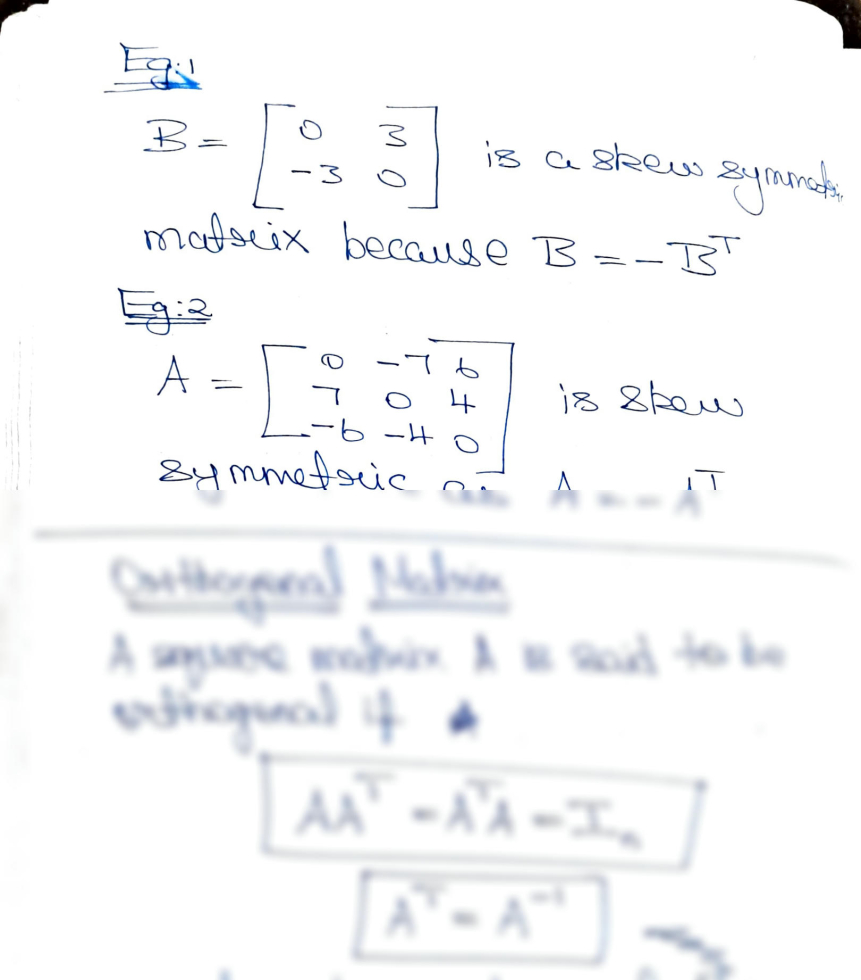 Eg:1
B = [ 0 3
-3 0 ] is a skew symmetric
matrix because B = -B^T
Eg:2
A = [ 0 -7 6
7 0 4
-6 -4 0 ] is skew
symmetric as A = -A^T
Orthogonal Matrix
A square matrix A is said to be
orthogonal if
AA^T = A^TA = I_n
A^T = A^-1